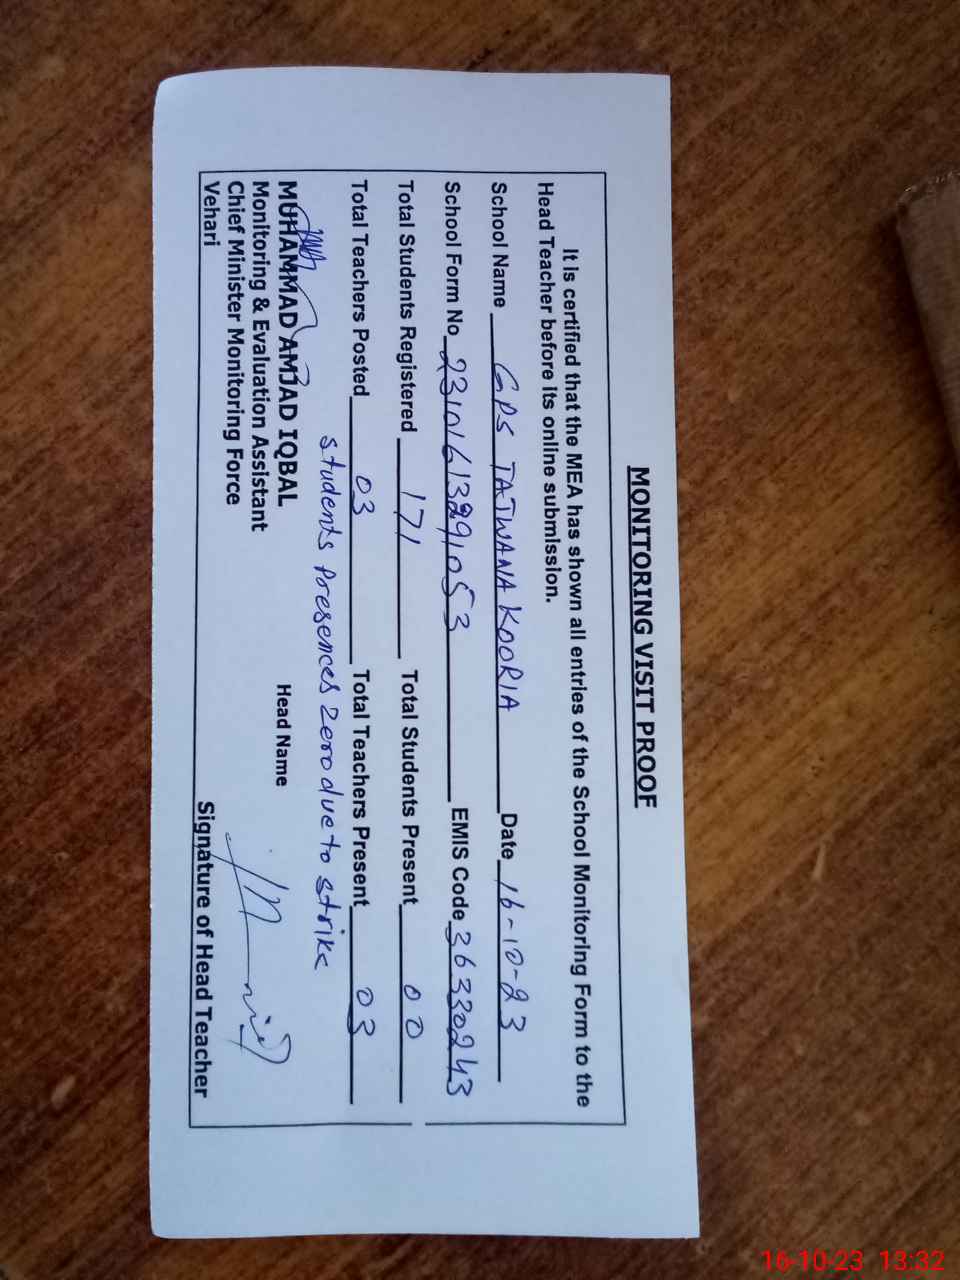 MONITORING VISIT PROOF
It is certified that the MEA has shown all entries of the School Monitoring Form to the
Head Teacher before its online submission.
School Name GPS TATWANA KOORIA Date 16-10-23
School Form No 23101613291053 EMIS Code 36330243
Total Students Registered 171 Total Students Present 00
Total Teachers Posted 03 Total Teachers Present 03
students presences zero due to strike
MUHAMMAD AMJAD IQBAL Head Name
Monitoring & Evaluation Assistant
Chief Minister Monitoring Force
Vehari Signature of Head Teacher
16-10-23 13:32